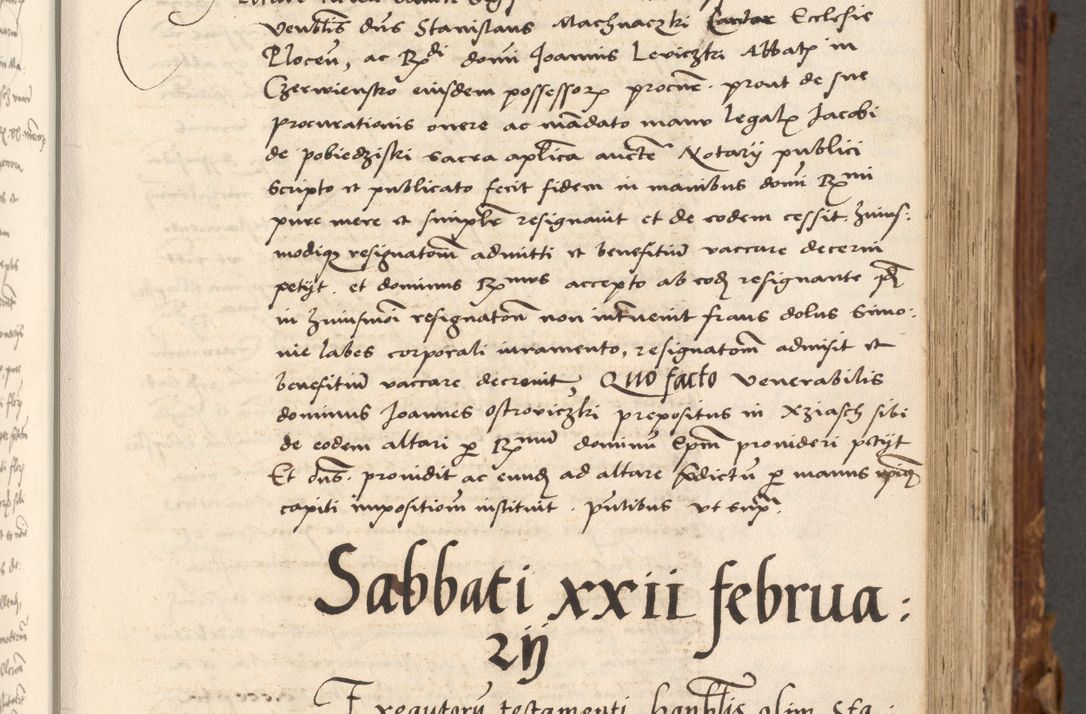 Venblis dns Stanislaus Machnaczki Cantor Ecclesie
Plocen, ac Rdi domi Joannis Leviczki Abbatis in
Czerwiensko eiusdem possessor procur. prout de sue
procurationis onere ac mandato manu legal Jacobi
de pobiedziski sacra aplica aucte Notarij publici
scripto et publicato fecit fidem in manibus domi Rmi
pure mere et simplr resignavit et de eodem cessit. huius:
modiq resignatom admitti et benefitiu vaccare decerni
petijt. et dominus Rmus accepto ab eod resignante
in huiusmoi resignaton non intervenit fraus dolus Simo:
nie labes corporali iuramento, resignatom admisit et
benefitiu vaccare decrevit, Quo facto venerabilis
dominus Joannes Ostroviczki prepositus in Xziasch sibi
de eodem altari p Rmu dominu Epm provideri petijt
Et dns. providit ac eund ad altare pdictu p manus
capiti impositiom instituit. pntibus ut supra.
Sabbati xxii februa:
rij
Executoru testamenti honblis olim Sta: